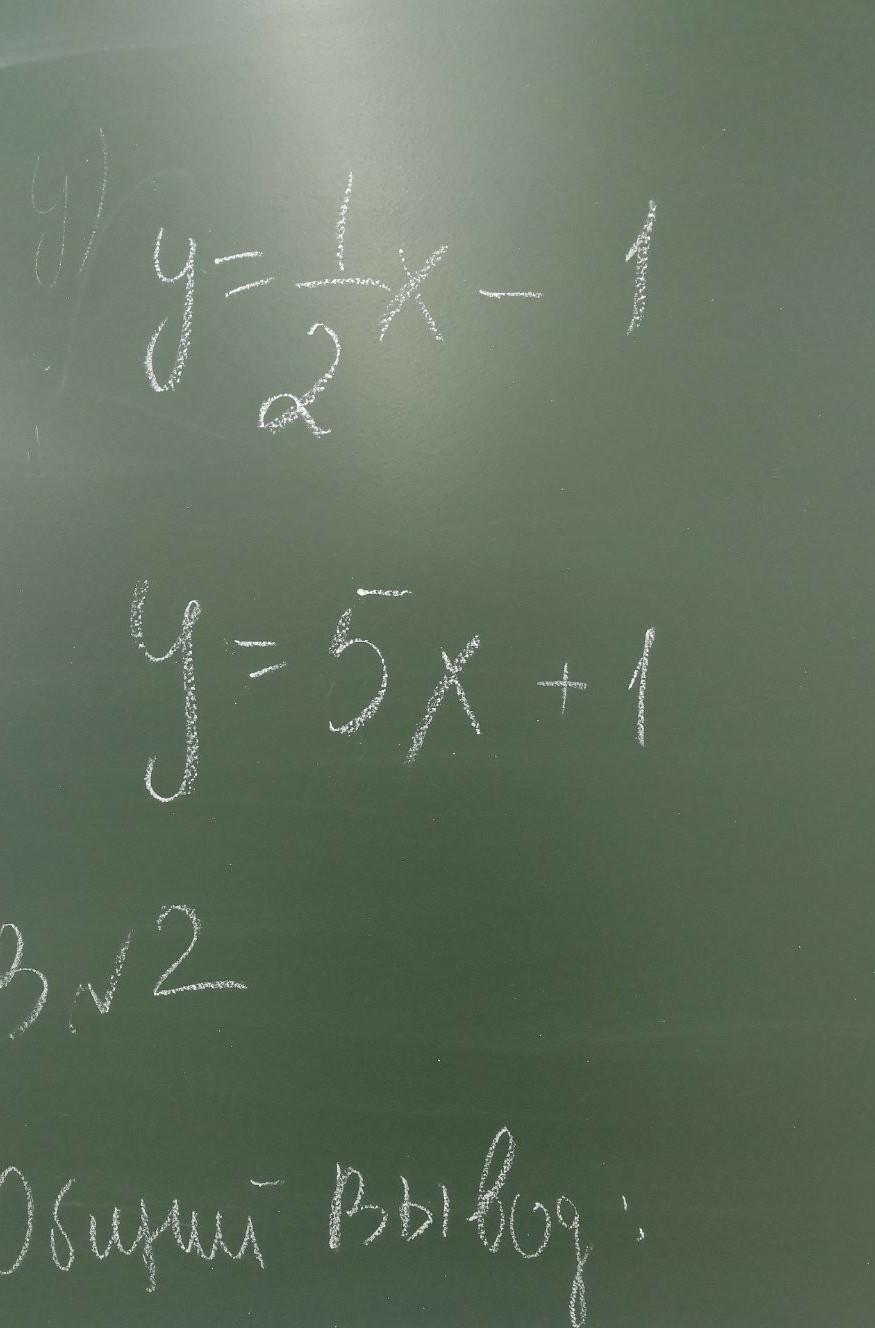 y = 1/2 x - 1
y = 5x + 1
В √2
Общий вывод: